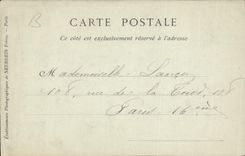 B
CARTE POSTALE
Ce côté est exclusivement réservé à l'adresse
Mademoiselle
108, rue de la
Paris. 16ème
Etablissements Photographiques de NEURDEIN Frères. — Paris